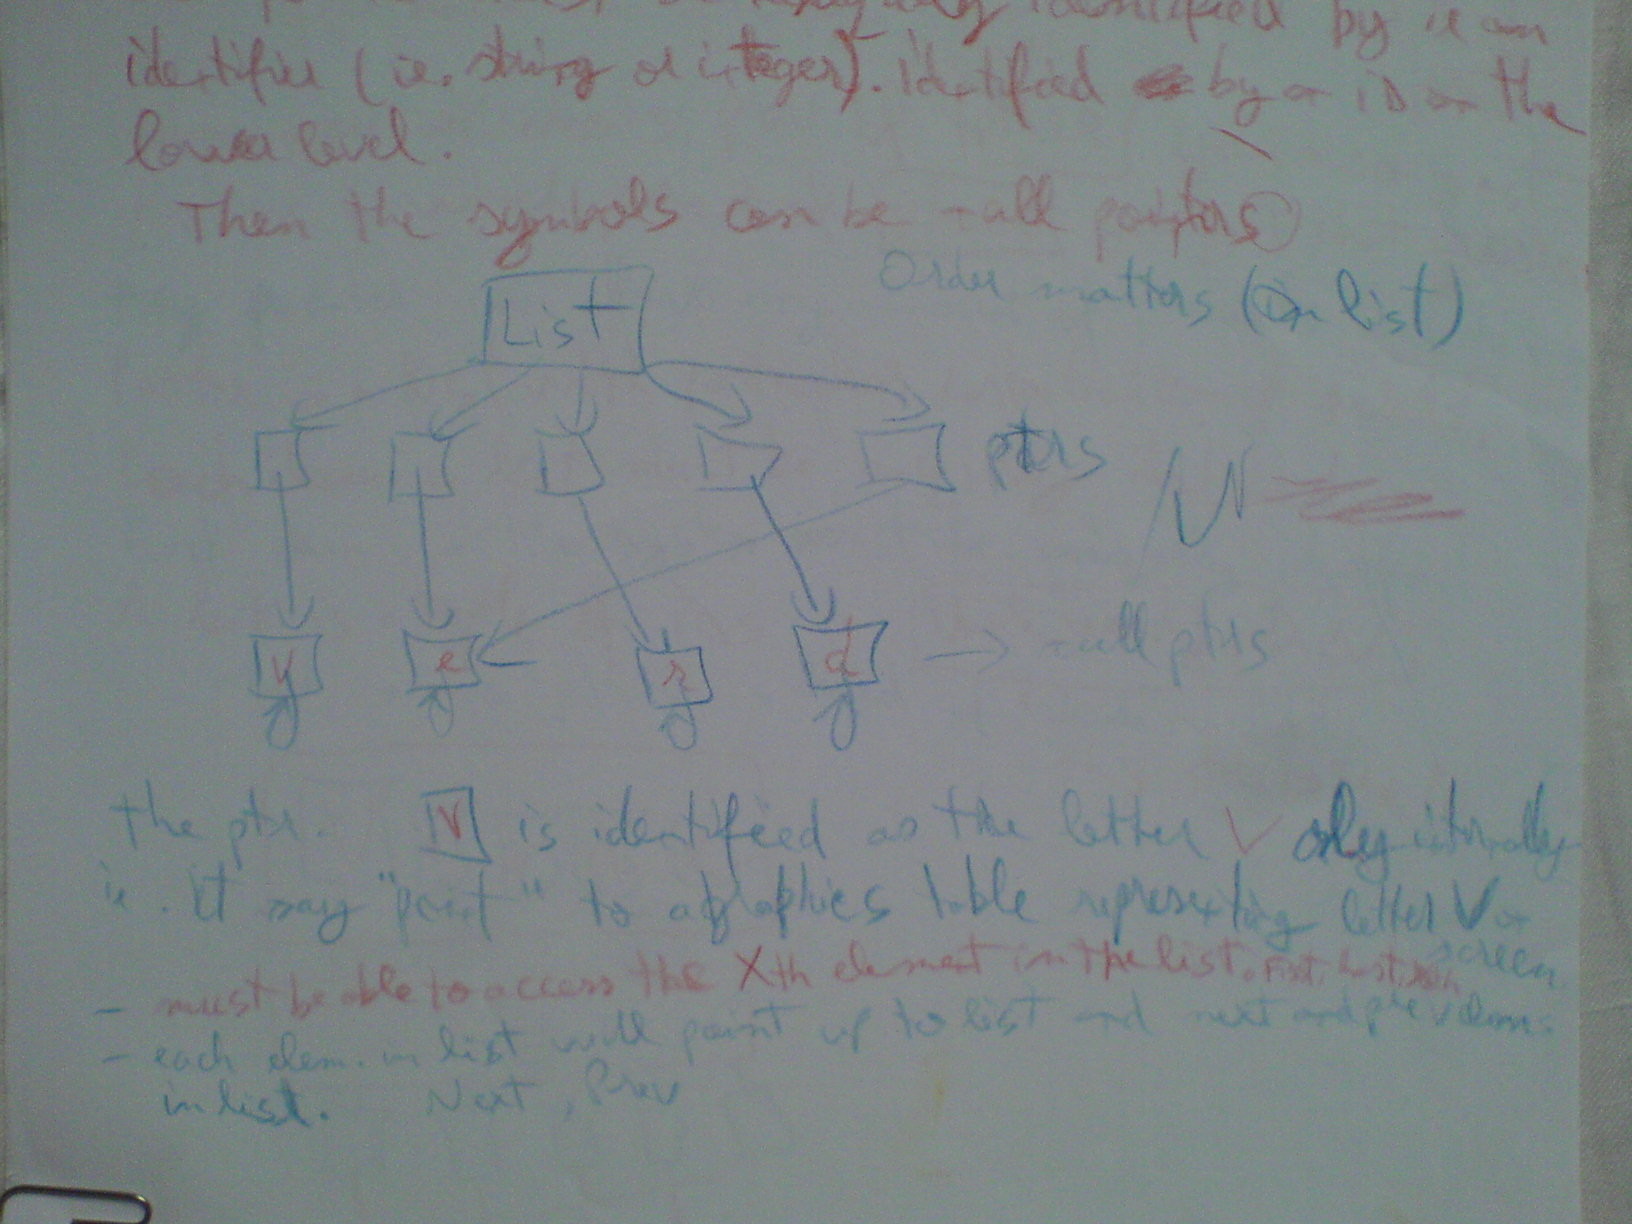 identified by
identifier (ie. string or integer). Identified by an ID on the
lower level.
Then the symbols can be null pointers
Order matters (in list)
List
ptrs
y e r d → null ptrs
the ptr. V is identified as the letter V only internally
ie. it may "point" to a graphics table representing letter V on
screen
- must be able to access the Xth element in the list. First, Last,
- each elem. in list will point up to list and next and prev elem.
in list. Next, Prev